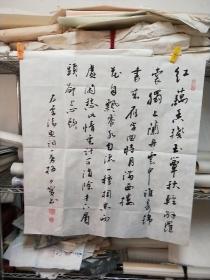 紅藕香殘玉簟秋輕解羅
裳獨上蘭舟雲中誰寄錦
書來雁字回時月滿西樓
花自飄零水自流一種相思兩
處閑愁此情無計可消除才下眉
頭卻上心頭
右李清照詞一首